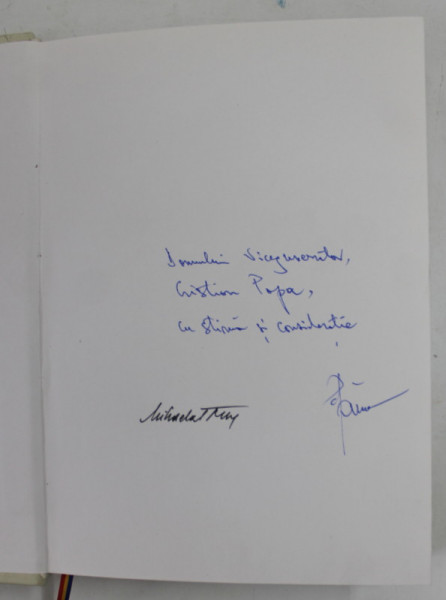 Domnului Viceguvernator,
Cristian Popa,
cu stimă și considerație
Mihaela